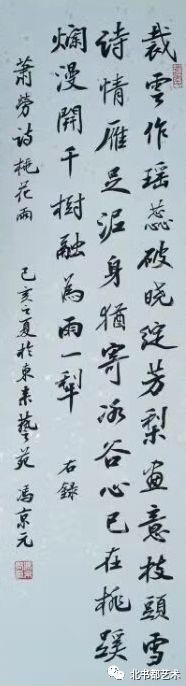 裁雲作瑶蕊破晓绽芳梨畫意枝頭雪
诗情雁足泥身猶寄冰谷心已在桃蹊
爛漫開千樹融為雨一犁 右錄
萧劳诗桃花雨 己亥之夏於東来藝苑 馮京元
北书都艺术